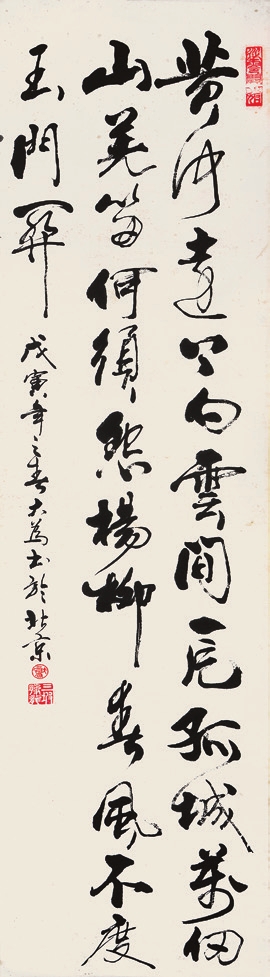 黄河遠上白雲間一片孤城萬仞
山羌笛何須怨楊柳春風不度
玉門關
戊寅年之春大為書於北京